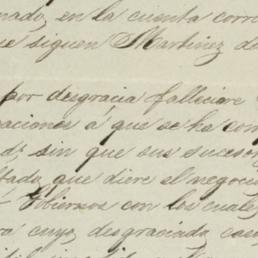 en la cuenta
que siguen Martinez de
por desgracia falleciere
aciones á que se ha com
sin que sus suceso
tada que diere el negocio
obiernos con los cuales
cuyo desgraciado caso